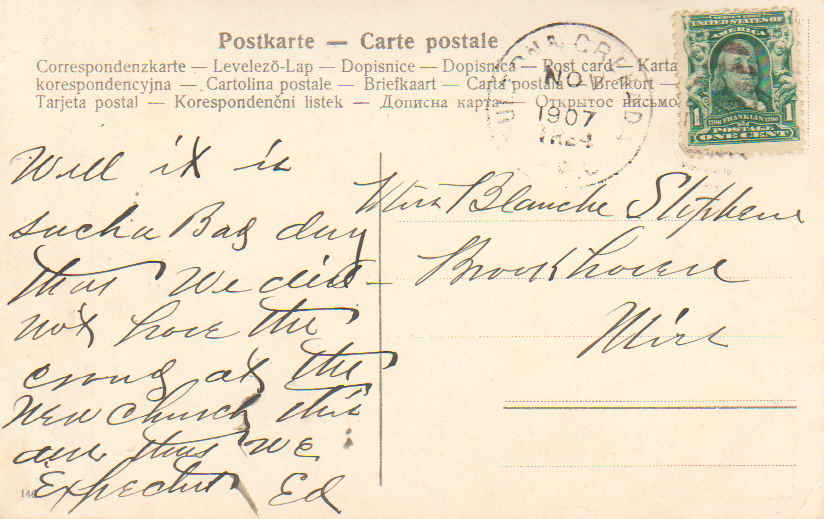 Postkarte — Carte postale
Correspondenzkarte — Levelező-Lap — Dopisnice — Dopisnica — Post card — Karta
korespondencyjna — Cartolina postale — Briefkaart — Carta postala — Brefkort —
Tarjeta postal — Korespondenční listek — Дописна карта — Открытое письмо
NOV
1907
UNITED STATES OF
AMERICA
1 FRANKLIN 1
POSTAGE
ONE CENT
Well it is
such a Bad day
that We did
not have the
crowd at the
New Church this
that WE
Expected Ed
Miss Blanche Stephens
Brookhaven
Miss